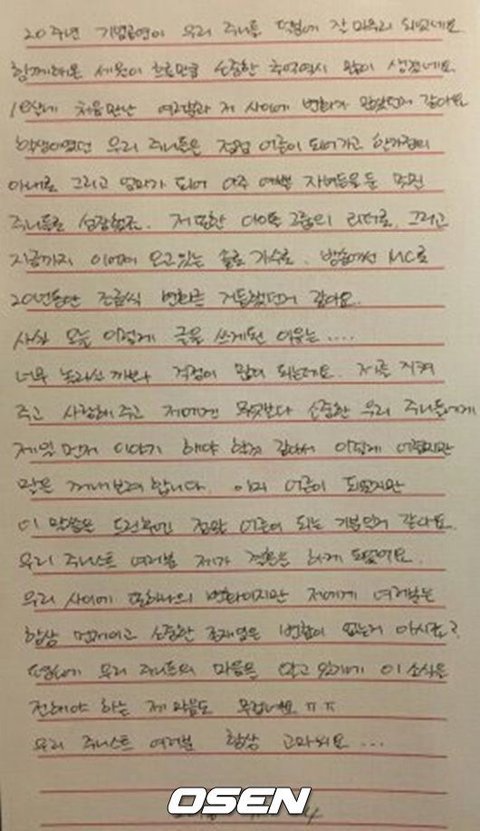 20주년 기념공연이 우리 주니들 덕분에 잘 마무리 되었네요
함께해온 세월이 흐른만큼 소중한 추억역시 많이 생겼네요
18살에 처음만난 여러분과 저 사이에 변화가 많았던거 같아요
학생이였던 우리 주니들은 점점 어른이 되어가고 한가정의
아내로 그리고 엄마가 되어 아주 예쁜 자녀들을 둔 멋진
주니들로 성장했죠. 저 또한 아이돌 그룹의 리더로, 그리고
지금까지 이어져 오고있는 솔로 가수로, 방송에선 MC로
20년동안 조금씩 변화를 거듭했던거 같아요.
사실 오늘 이렇게 글을 쓰게된 이유는....
너무 놀라실까봐 걱정이 많이 되는데요. 저를 지켜
주고 사랑해주고 저에겐 무엇보다 소중한 우리 주니들에게
제일 먼저 이야기 해야 할것 같아서 이렇게 어렵지만
말을 꺼내보려 합니다. 이미 어른이 되었지만
이 말씀을 드린후에 정말 어른이 되는 기분인거 같아요.
우리 주니스트 여러분 제가 결혼을 하게 되었어요.
우리 사이에 또하나의 변화이지만 저에게 여러분은
항상 먼저이고 소중한 존재임은 변함이 없는거 아시죠?
우리 주니들의 마음을 알고 있기에 이 소식을
전해야 하는 제 마음도 무겁네요 ㅠㅠ
우리 주니스트 여러분 항상 고마워요 ...
OSEN